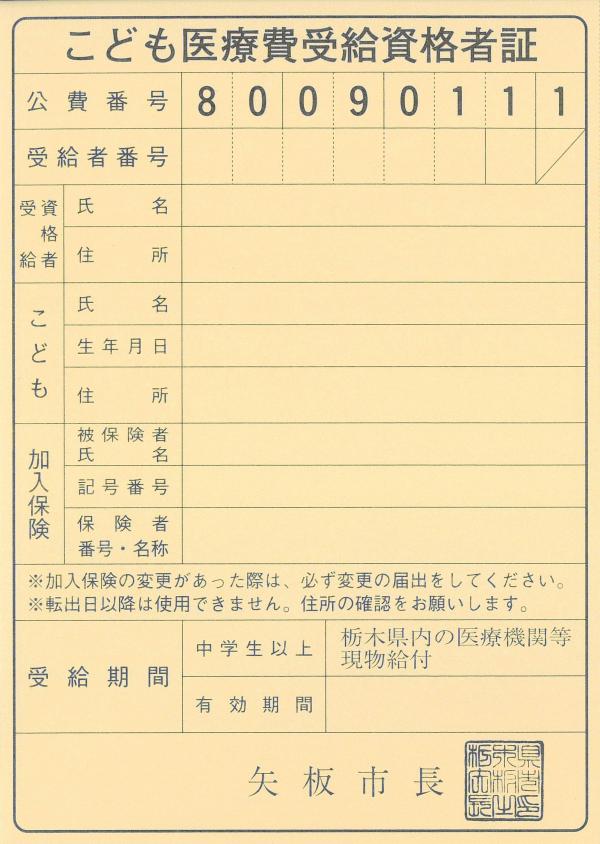 こども医療費受給資格者証
公費番号 80090111
受給者番号
受給資格者
氏名
住所
こども
氏名
生年月日
住所
加入保険
被保険者
氏名
記号番号
保険者
番号・名称
※加入保険の変更があった際は、必ず変更の届出をしてください。
※転出日以降は使用できません。住所の確認をお願いします。
受給期間
中学生以上
栃木県内の医療機関等
現物給付
有効期間
矢板市長